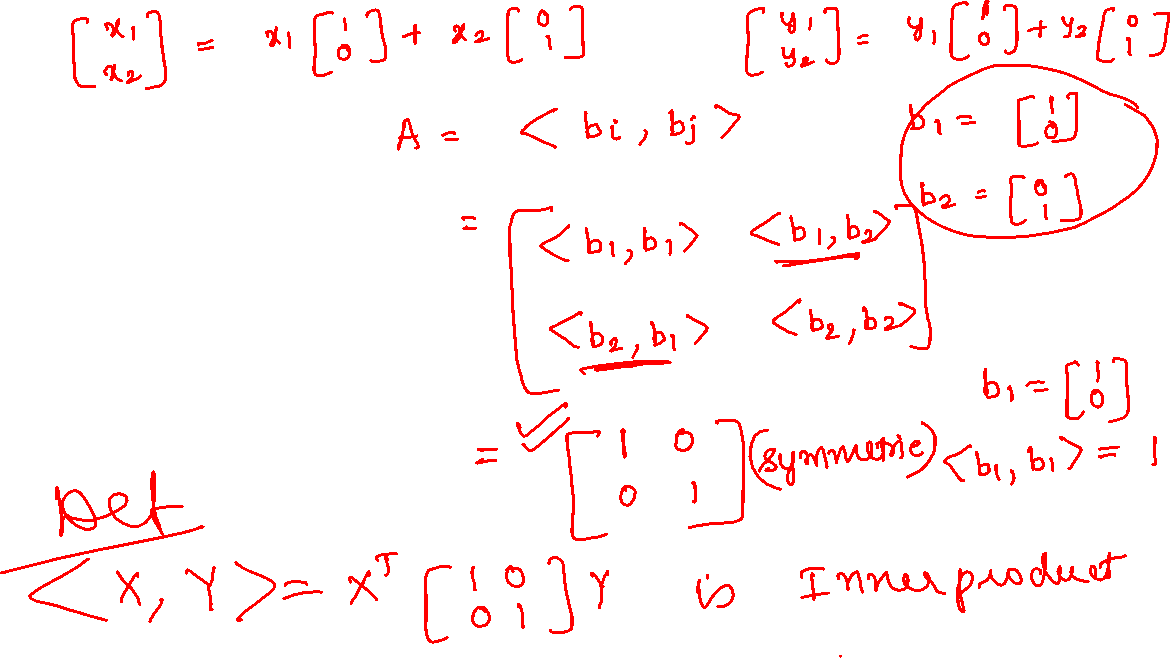 [x1 x2] = x1 [1 0] + x2 [0 1] [y1 y2] = y1 [1 0] + y2 [0 1]
A = < bi, bj > b1 = [1 0]
b2 = [0 1]
= [ <b1, b1> <b1, b2>
<b2, b1> <b2, b2> ]
b1 = [1 0]
= ✓✓ [1 0 0 1] (symmetric) <b1, b1> = 1
Def
<X, Y> = X^T [1 0 0 1] Y is Inner product